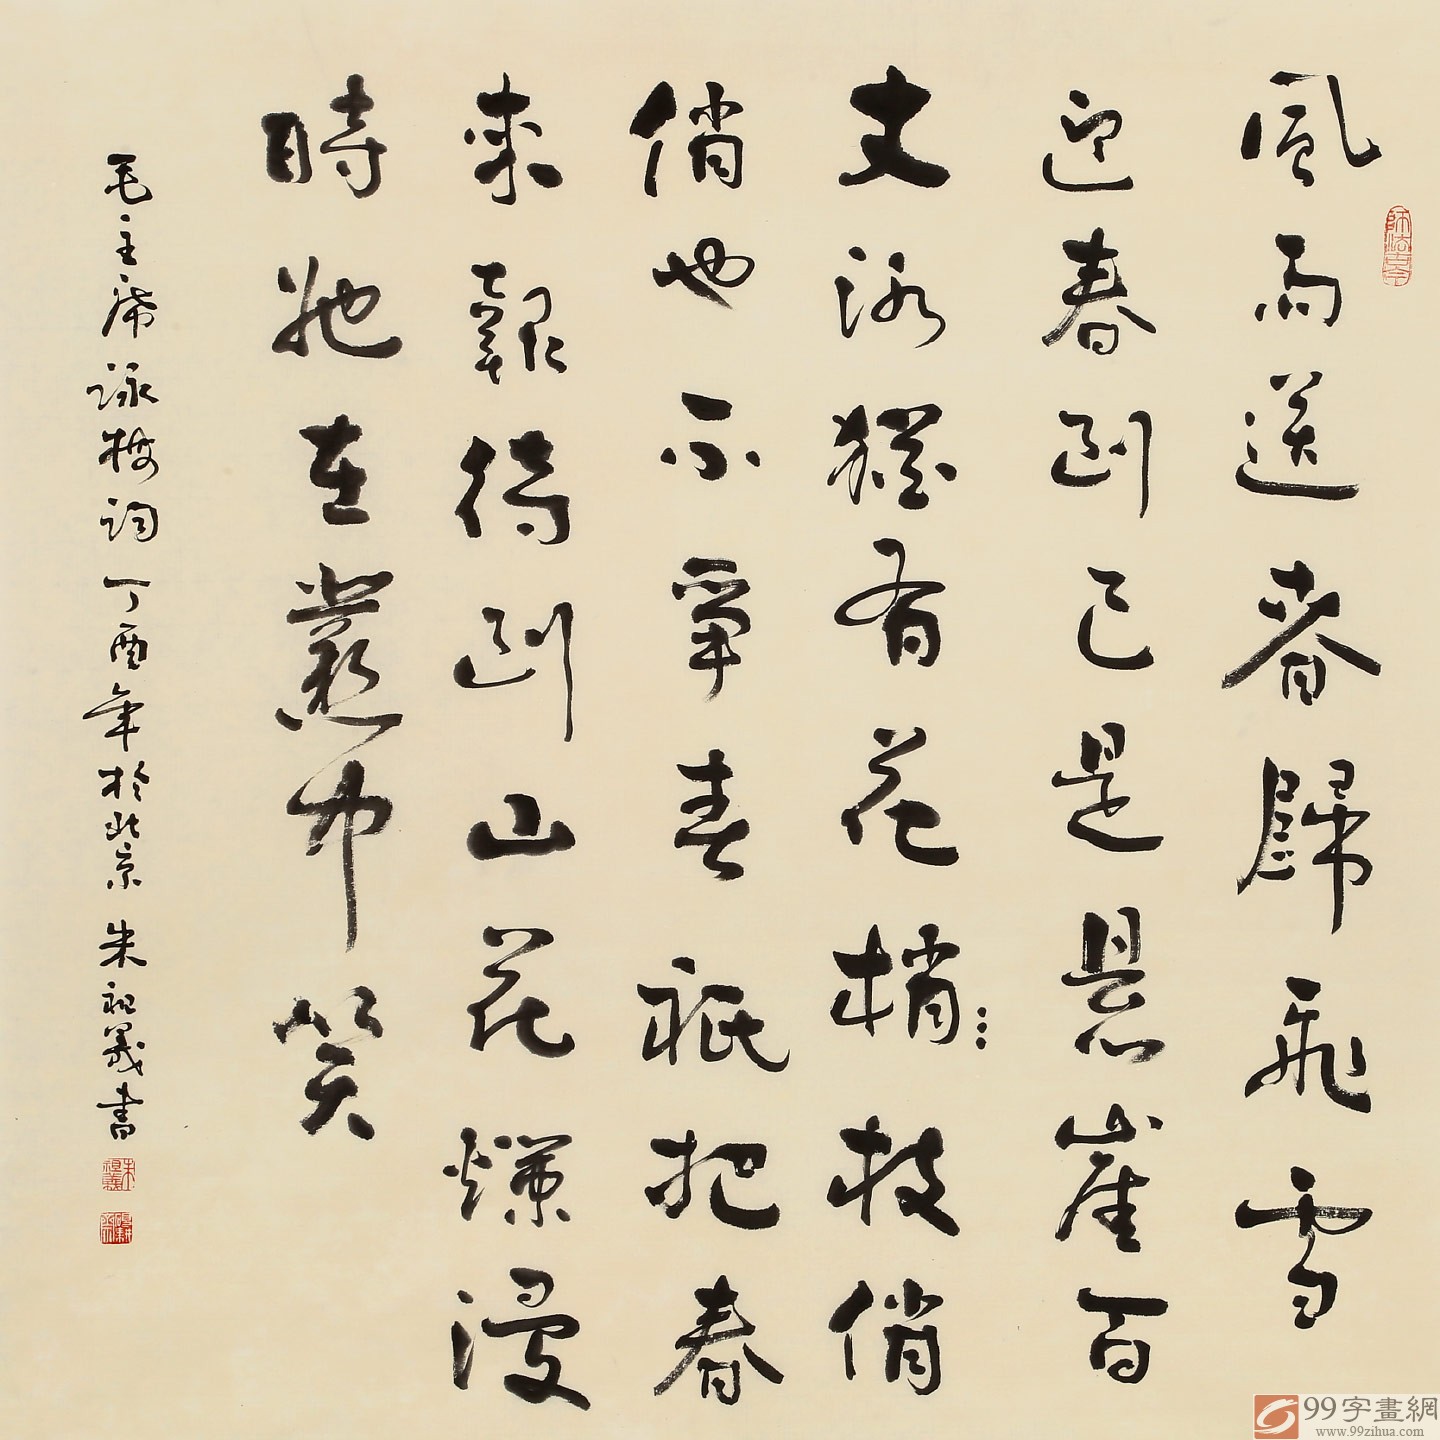 風雨送春歸飛雪
迎春到已是悬崖百
丈冰猶有花梢枝俏
俏也不爭春祇把春
來報待到山花爛漫
時她在叢中笑
毛主席詠梅詞丁酉年於北京朱祖義書
師法古今
朱祖義
99字畫網
www.99zihua.com